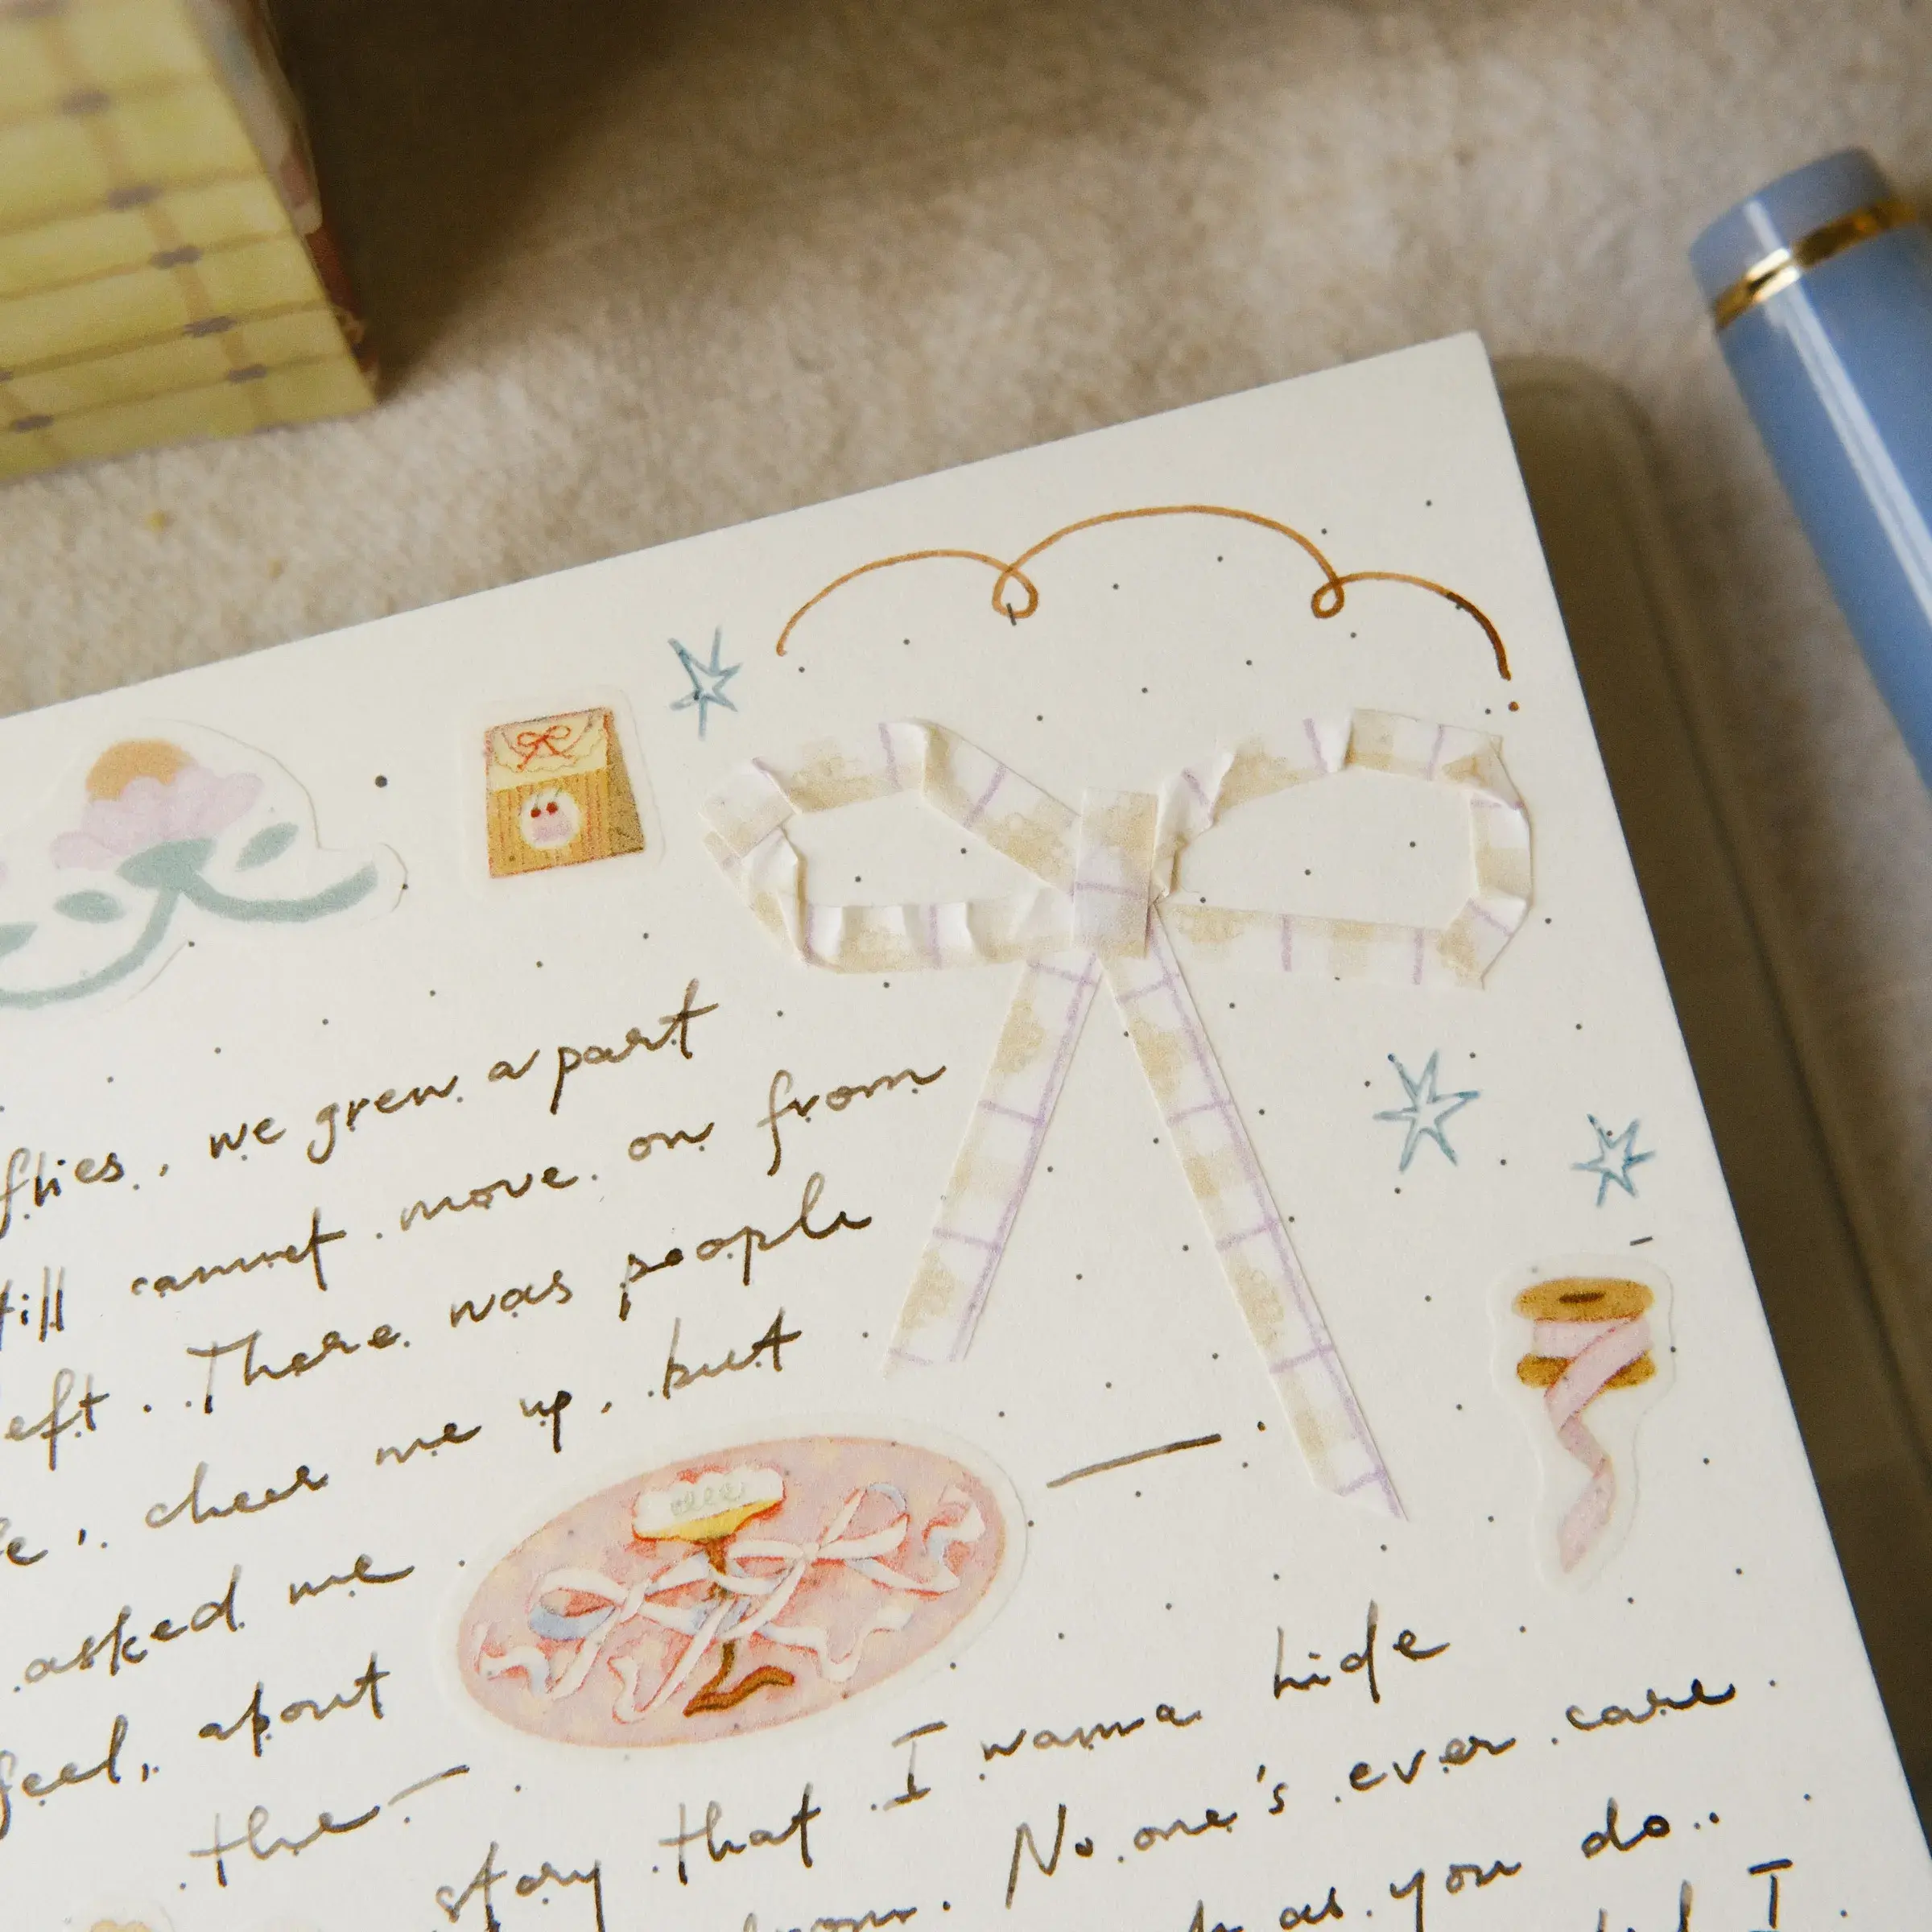 flies, we grew apart
till cannot move on from
eft. There was people
e, cheer me up, but
asked me
feel, about
the—
story that I wanna hide
No one's ever care
as you do.
I